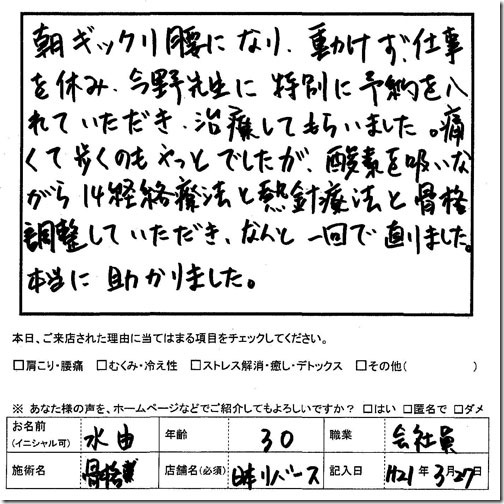 朝ギックリ腰になり、動けず、仕事
を休み、今野先生に特別に予約を入
れていただき、治療してもらいました。痛
くて歩くのもやっとでしたが、酸素を吸いな
がら14経絡療法と熱針療法と骨格
調整していただき、なんと一回で直りました。
本当に助かりました。
本日、ご来店された理由に当てはまる項目をチェックしてください。
□肩こり・腰痛 □むくみ・冷え性 □ストレス解消・癒し・デトックス □その他( )
※ あなた様の声を、ホームページなどでご紹介してもよろしいですか？ □はい □匿名で □ダメ
お名前 (イニシャル可) 水由 年齢 30 職業 会社員
施術名 骨格 店舗名(必須) リバース 記入日 H21年3月27日